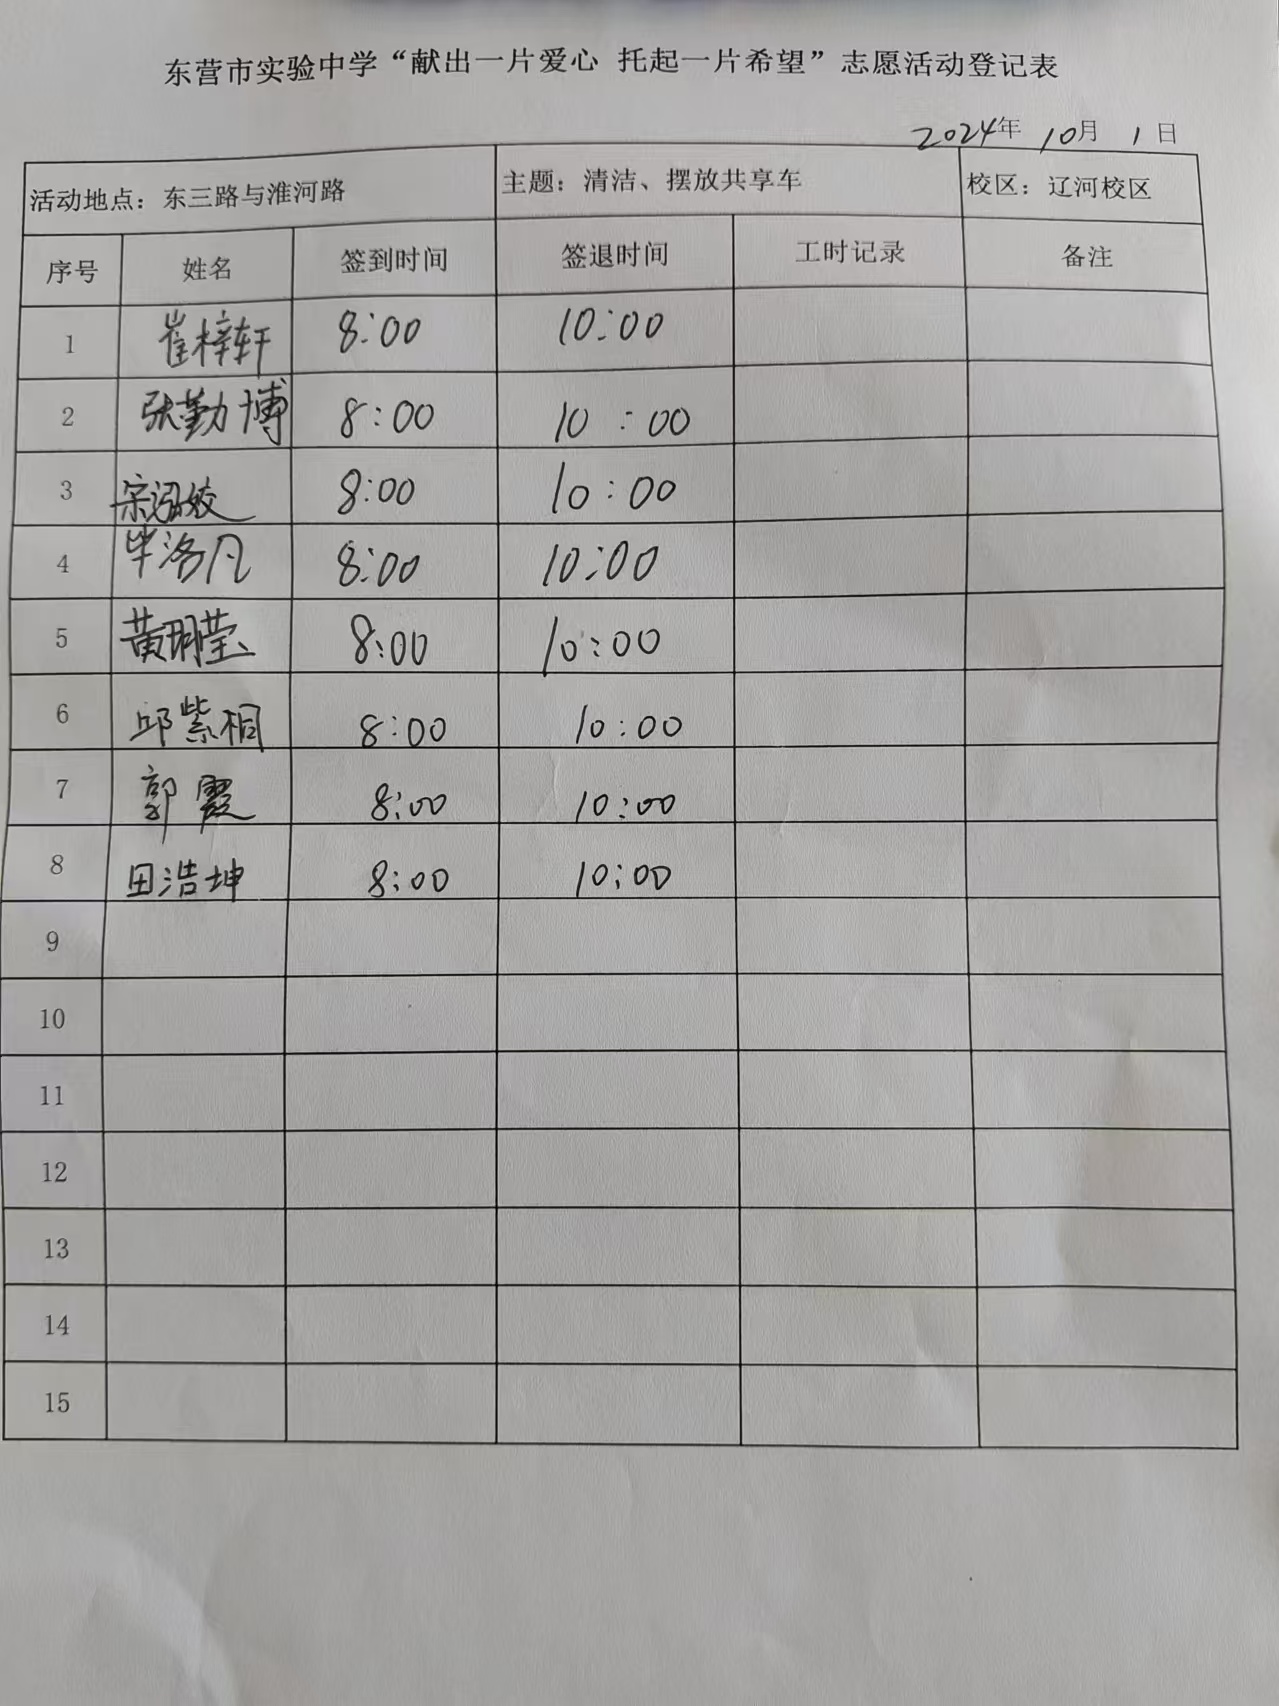 东营市实验中学“献出一片爱心 托起一片希望”志愿活动登记表
2024年 10月 1日
活动地点：东三路与淮河路 主题：清洁、摆放共享车 校区：辽河校区
序号 姓名 签到时间 签退时间 工时记录 备注
1 崔梓轩 8:00 10:00
2 张勤博 8:00 10:00
3 宋泓姣 8:00 10:00
4 毕洛凡 8:00 10:00
5 黄玥莹 8:00 10:00
6 邱紫桐 8:00 10:00
7 郭霞 8:00 10:00
8 田浩坤 8:00 10:00
9
10
11
12
13
14
15